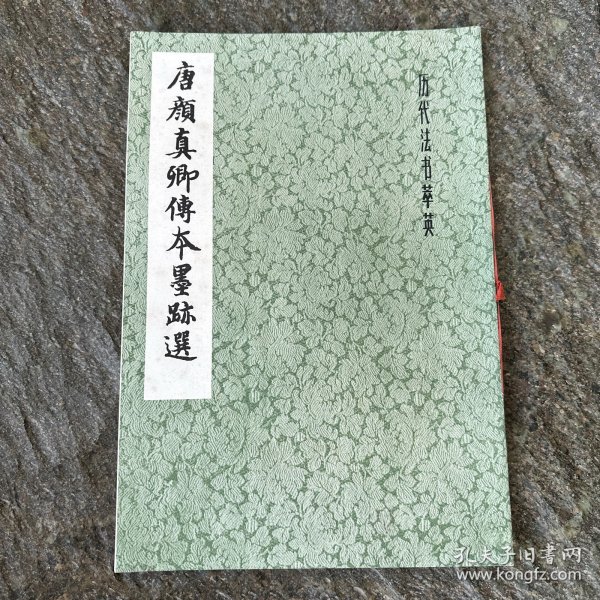 历代法书萃英
唐顔真卿傳本墨跡選
孔夫子旧書网
www.kongfz.com